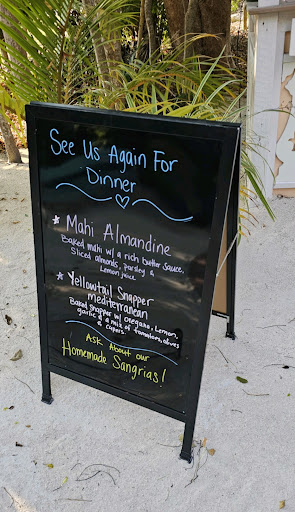 See Us Again For
Dinner
Mahi Almandine
Baked mahi w/ a rich butter sauce,
Sliced almonds, parsley &
Lemon juice
Yellowtail Snapper
mediterranean
Baked Snapper w/ oregano, Lemon,
garlic & a mix of tomatoes, olives
& capers.
Ask About our
Homemade Sangrias!